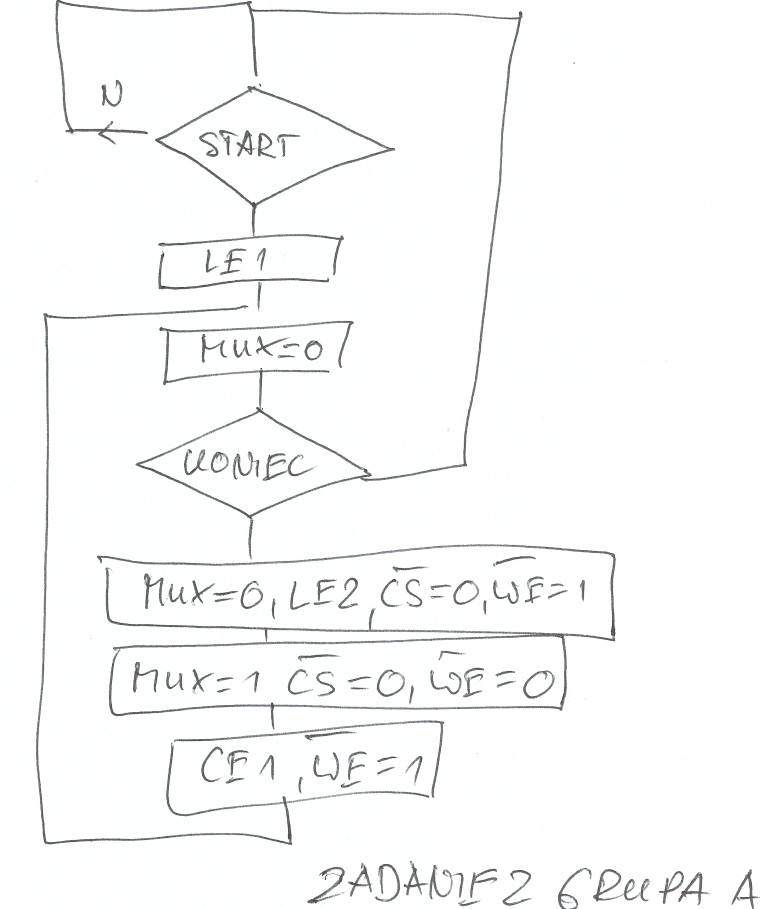 N
START
LE1
MUX=0
KONIEC
MUX=0, LE2, C̅S̅=0, W̅E̅=1
MUX=1 C̅S̅=0, W̅E̅=0
CE1, W̅E̅=1
ZADANIE 2 GRUPA A